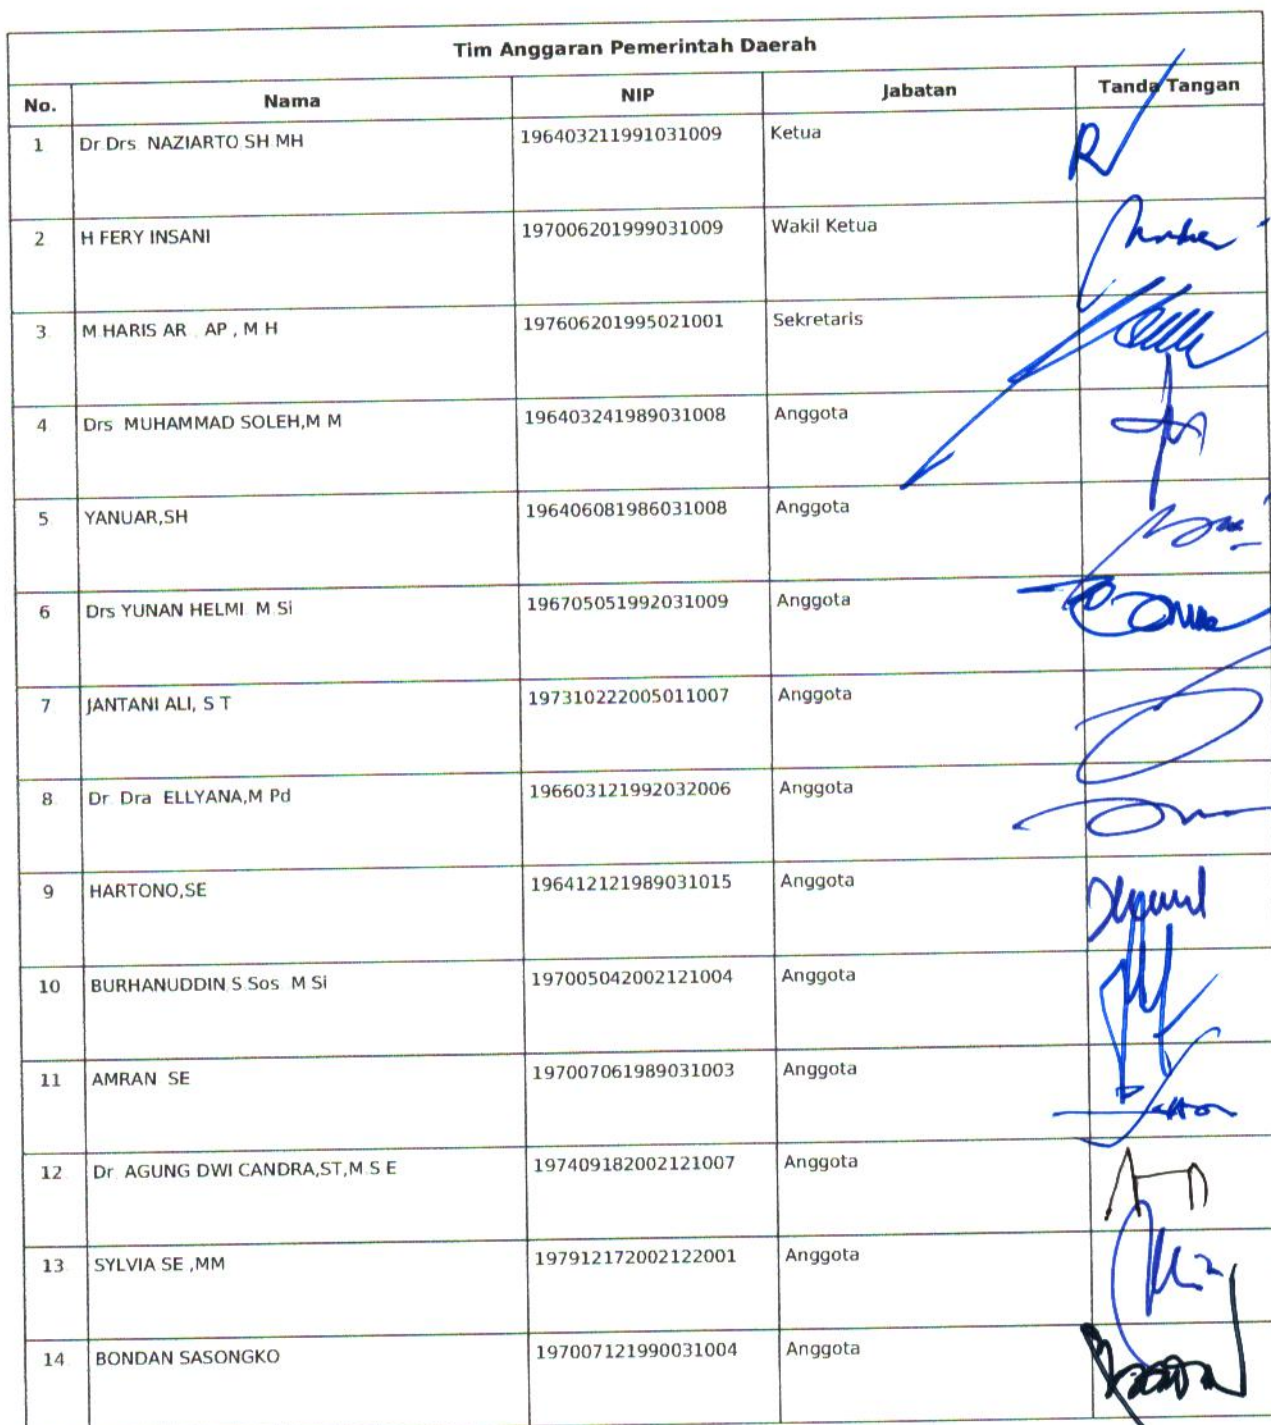 Tim Anggaran Pemerintah Daerah
No. Nama NIP Jabatan Tanda Tangan
1 Dr.Drs. NAZIARTO.SH.MH 196403211991031009 Ketua
2 H FERY INSANI 197006201999031009 Wakil Ketua
3. M.HARIS AR. AP , M.H 197606201995021001 Sekretaris
4 Drs MUHAMMAD SOLEH,M M 196403241989031008 Anggota
5 YANUAR,SH 196406081986031008 Anggota
6 Drs YUNAN HELMI. M.Si 196705051992031009 Anggota
7 JANTANI ALI, S T 197310222005011007 Anggota
8. Dr. Dra ELLYANA,M Pd 196603121992032006 Anggota
9 HARTONO,SE 196412121989031015 Anggota
10 BURHANUDDIN.S.Sos. M.Si 197005042002121004 Anggota
11 AMRAN SE 197007061989031003 Anggota
12 Dr. AGUNG DWI CANDRA,ST,M.S E 197409182002121007 Anggota
13 SYLVIA SE ,MM 197912172002122001 Anggota
14 BONDAN SASONGKO 197007121990031004 Anggota